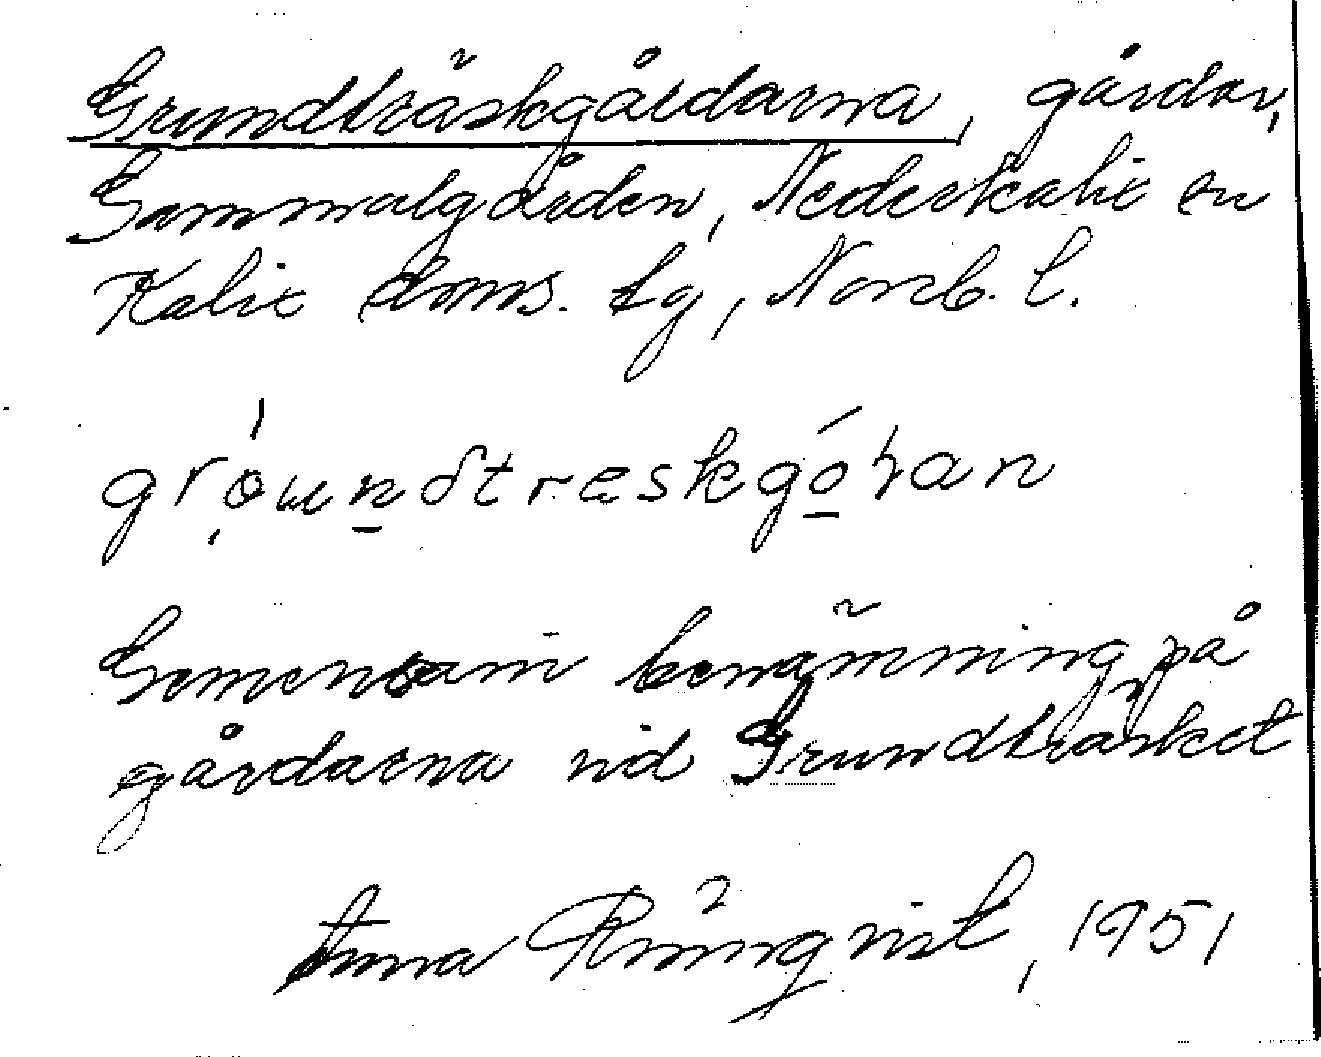 Grundträskgårdarna, gårdar,
Gammalgården, Nederkalix sn
Kalix doms. tg, Norrb. l.
Gemensam benämning på
gårdarna vid Grundträsket
Anna Rönnqvist, 1951